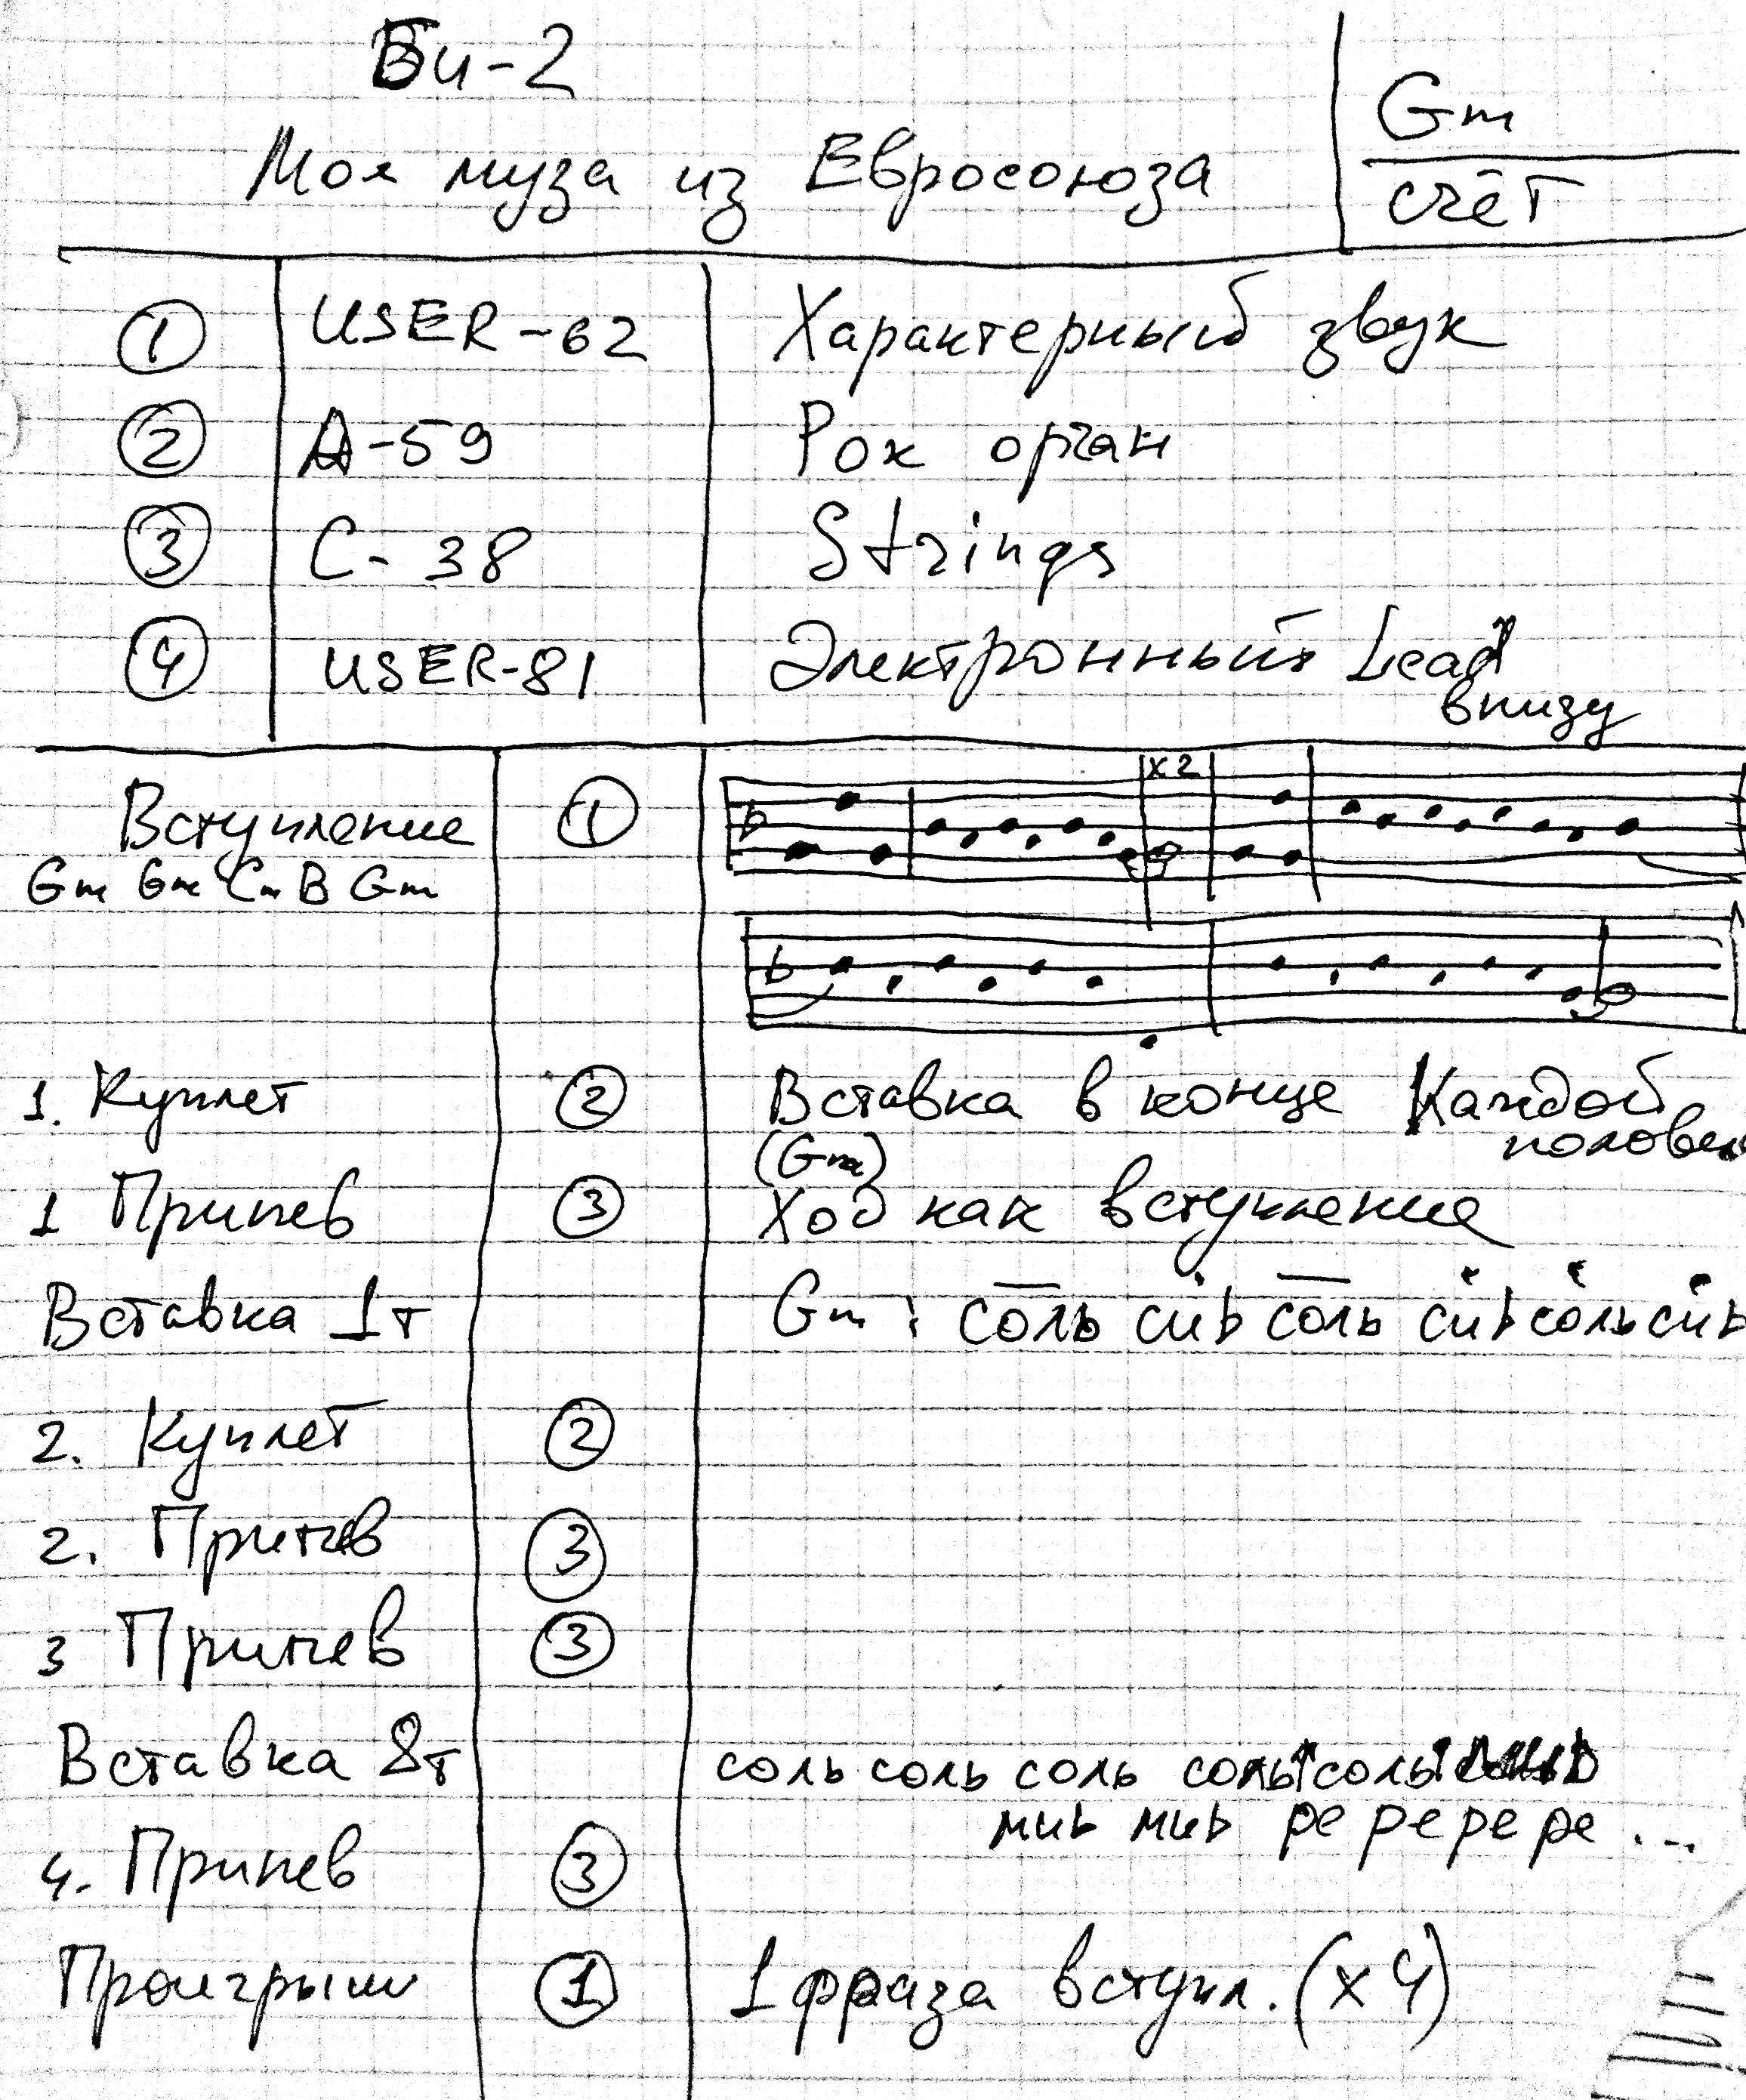 Би-2
Моя муза из Евросоюза
Gm
счёт
1 USER-62 Характерный звук
2 A-59 Рок орган
3 C-38 Strings
4 USER-81 Электронный Lead
внизу
Вступление 1 x2
Gm Gm Cm B Gm
1. Куплет 2 Вставка в конце каждой
половен
(Gm)
1 Припев 3 Ход как вступление
Вставка 1т Gm: соль си♭ соль си♭ соль си♭
2. Куплет 2
2. Припев 3
3 Припев 3
Вставка 8т соль соль соль соль соль
ми♭ ми♭ ре ре ре ре ...
4. Припев 3
Проигрыш 1 1 фраза вступл. (x4)